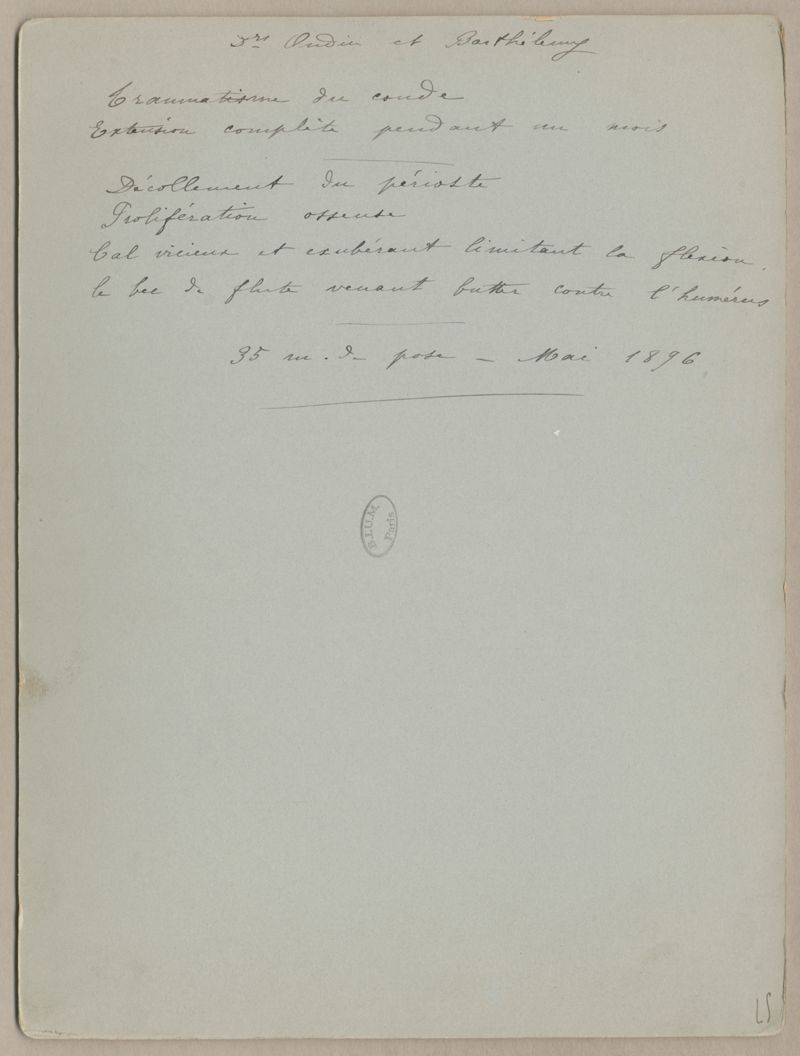 Drs Oudin et Barthélemy
Traumatisme du coude
Extension complète pendant un mois
Décollement du périoste
Prolifération osseuse
Cal vicieux et exubérant limitant la flexion,
le bec de flute venant butter contre l'humérus
35 m. de pose – Mai 1896
B.I.U.M
Paris